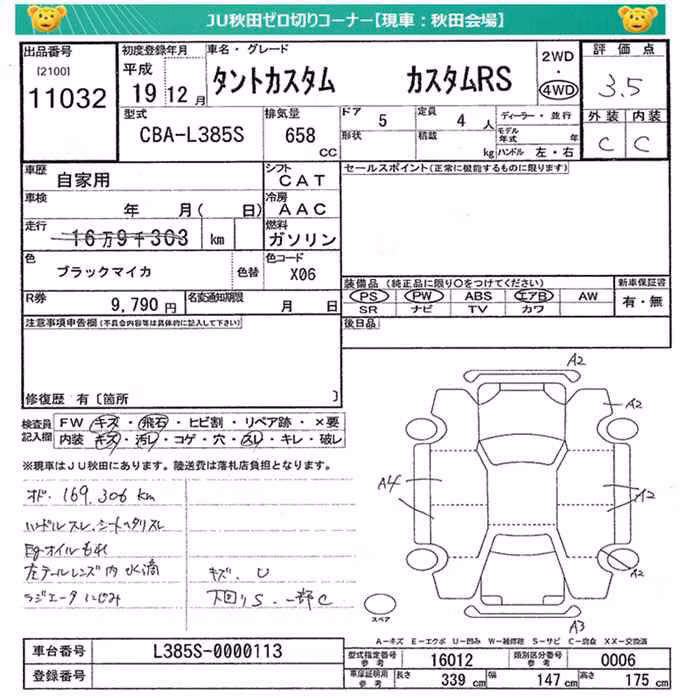 JU秋田ゼロ切りコーナー【現車：秋田会場】
出品番号
[2100]
11032
初度登録年月
平成
19 12 月
車名・グレード
タントカスタム カスタムRS
2WD
・
4WD
評価点
3.5
外装 内装
C C
型式
CBA-L385S
排気量
658
CC
ドア 5
形状
定員 4 人
積載 kg
ディーラー・並行
モデル年式 年
ハンドル 左・右
車歴
自家用
シフト
CAT
車検
年 月( 日)
冷房
AAC
走行
16万9千303 km
燃料
ガソリン
色
ブラックマイカ
色替
色コード
X06
R券
9,790 円
名変通知期限
月 日
セールスポイント(正常に機能するものに限ります)
装備品 (純正品に限り○をつけてください)
PS PW ABS エアB AW
SR ナビ TV カワ
新車保証書
有・無
後日品
注意事項申告欄(不具合内容等は具体的に記入して下さい)
修復歴 有〔箇所 〕
検査員
記入欄
FW キズ・飛石・ヒビ割・リペア跡・×要
内装 キズ・汚レ・コゲ・穴・スレ・キレ・破レ
※現車はJU秋田にあります。陸送費は落札店負担となります。
オド. 169,306 km
ハンドルスレ.シートヘタリスレ
Egオイルもれ
左テールレンズ内 水滴
ラジエータにじみ
キズ.U
下回りS.一部C
A2
A2
A4
A2
A2
A3
スペア
A-キズ E-エクボ U-凹み W-補修跡 S-サビ C-腐食 XX-交換済
車台番号
L385S-0000113
登録番号
型式指定番号
参考
16012
類別区分番号
参考
0006
車庫証明用
参考
長さ 339 cm
幅 147 cm
高さ 175 cm